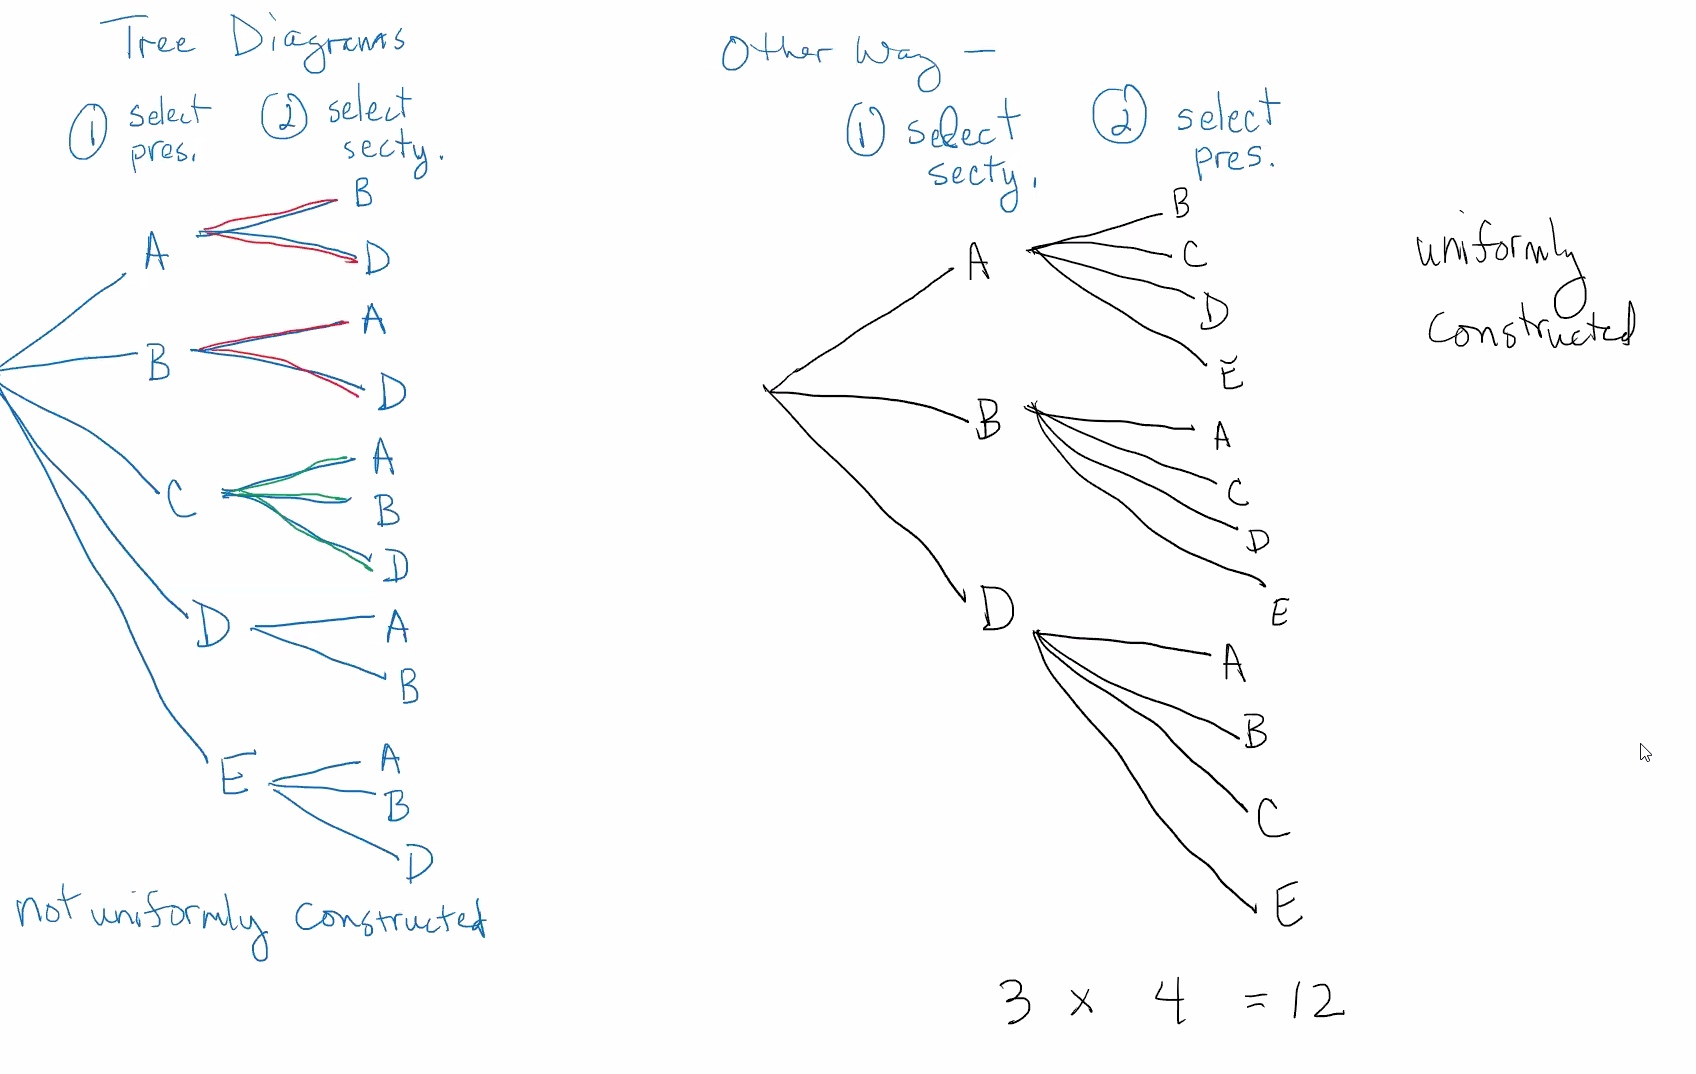 Tree Diagrams
① select
pres.
② select
secty.
A
B
D
B
A
D
C
A
B
D
D
A
B
E
A
B
D
not uniformly constructed
Other Way –
① select
secty.
② select
pres.
A
B
C
D
E
B
A
C
D
E
D
A
B
C
E
3 x 4 = 12
uniformly
constructed